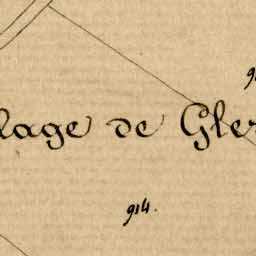 lage de Gler
914.